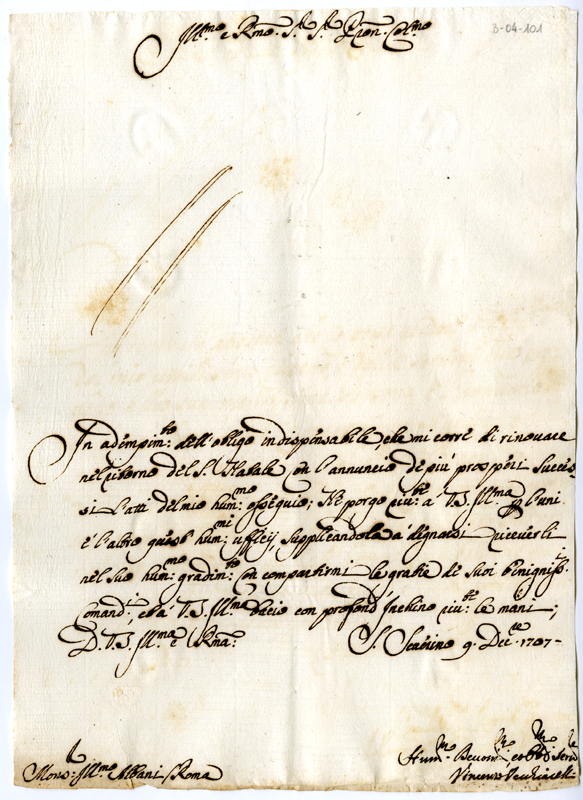 3-04-101
Ill.mo e Rmo. S.r S.r Pron. Col.mo
In adempim.to: dell'obligo indispensabile, che mi corre di rinovare
nel ritorno del S. Natale con l'annuncio de più prosperi succes
si l'atti del mio hum.mo ossequio; Ne porgo riv.te: a V.S. Ill.ma p l'uni
e l'altro questi hum.mi ufficij, supplicandola a degnarsi riceverli
nel suo hum.mo gradim.to con compartirmi le gratie de suoi benignis.
comand.i, et a V.S. Ill.ma bacio con profond' inchino riv.te: le mani;
D. V.S. Ill.ma e Rma: S. 9. Dec.re 1707
Mons.r Ill.mo Albani Roma
Hum.mo Devot.mo et Obb.mo Ser.re
Vincenzo